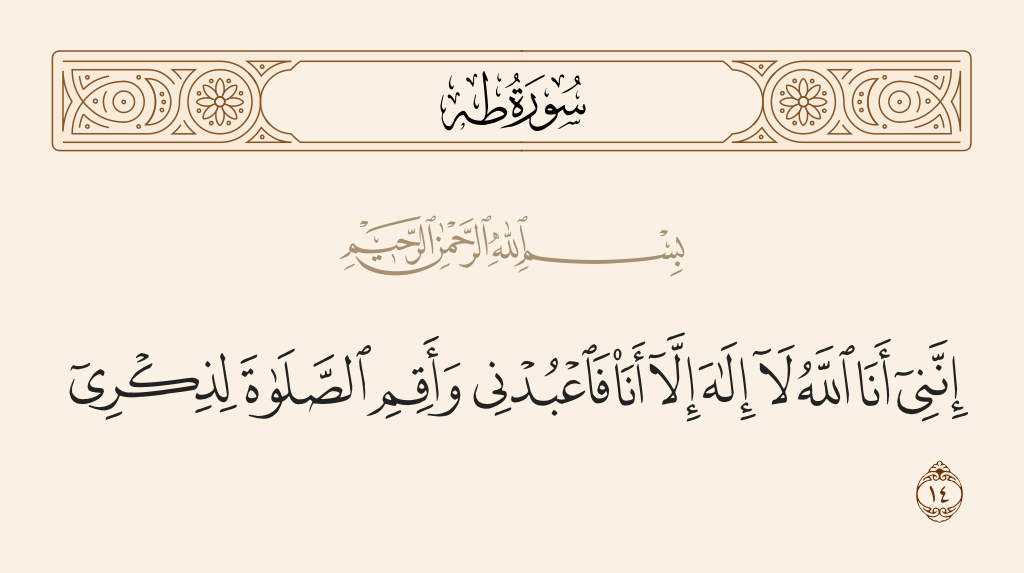 سُورَةُ طه
بِسْمِ ٱللَّهِ ٱلرَّحْمَٰنِ ٱلرَّحِيمِ
إِنَّنِىٓ أَنَا ٱللَّهُ لَآ إِلَٰهَ إِلَّآ أَنَا۠ فَٱعْبُدْنِى وَأَقِمِ ٱلصَّلَوٰةَ لِذِكْرِىٓ
١٤